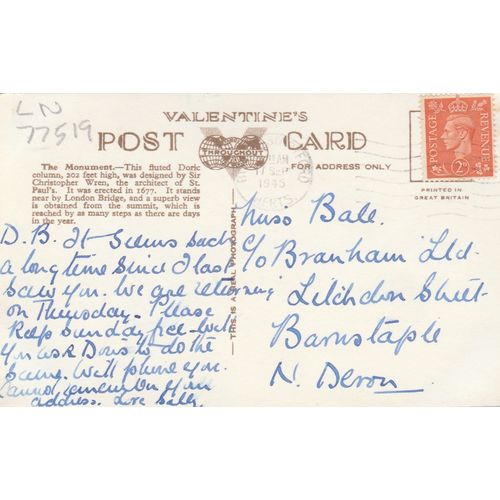 LN
77519
VALENTINE'S
POST CARD
THROUGHOUT
FOR ADDRESS ONLY
17 SEP
1945
HERTS
POSTAGE
REVENUE
2D
PRINTED IN
GREAT BRITAIN
The Monument.—This fluted Doric
column, 202 feet high, was designed by Sir
Christopher Wren, the architect of St.
Paul's. It was erected in 1677. It stands
near by London Bridge, and a superb view
is obtained from the summit, which is
reached by as many steps as there are days
in the year.
D.B. It seems such
a long time since I last
saw you. We are returning
on Thursday. Please
keep Sunday free. Will
you ask Doris to do the
same. We'll phone you.
Cannot remember your
address. Love Sally.
THIS IS A REAL PHOTOGRAPH
Miss Bale.
c/o Branham Ltd.
Litchdon Street
Barnstaple
N. Devon